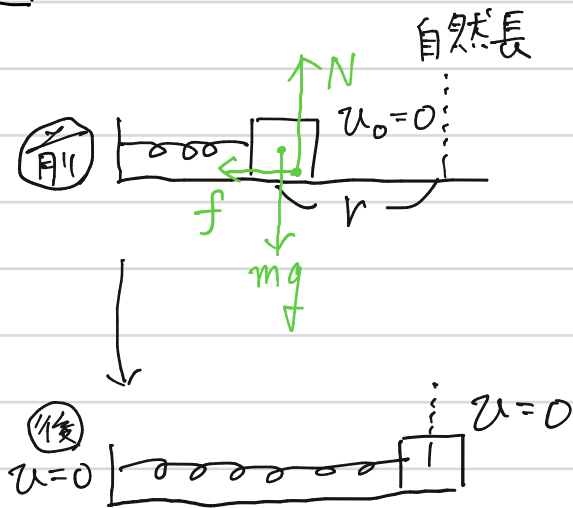 自然長
N
前
v₀=0
f
r
mg
後
v=0
v=0